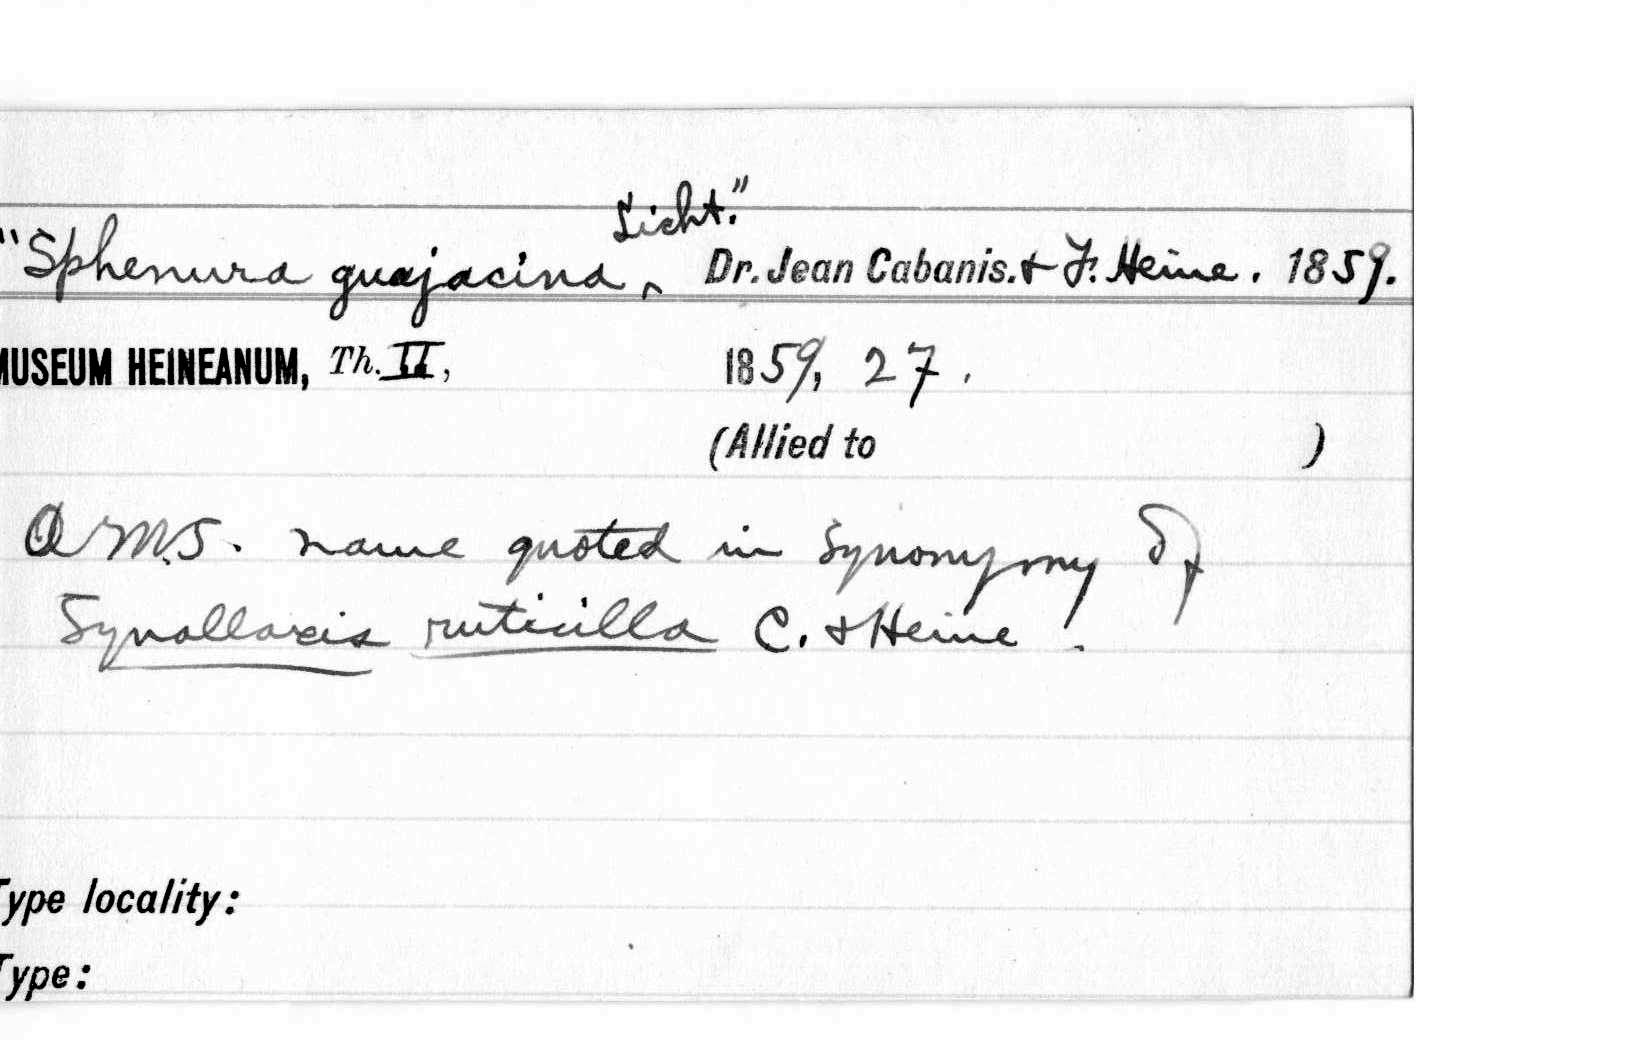 "Sphenura guajacina ‸ Licht." Dr. Jean Cabanis. & F. Heine. 1859.
MUSEUM HEINEANUM, Th. II, 1859, 27.
(Allied to )
A M.S. name quoted in synonymy of
Synallaxis ruticilla C. & Heine.
Type locality:
Type: